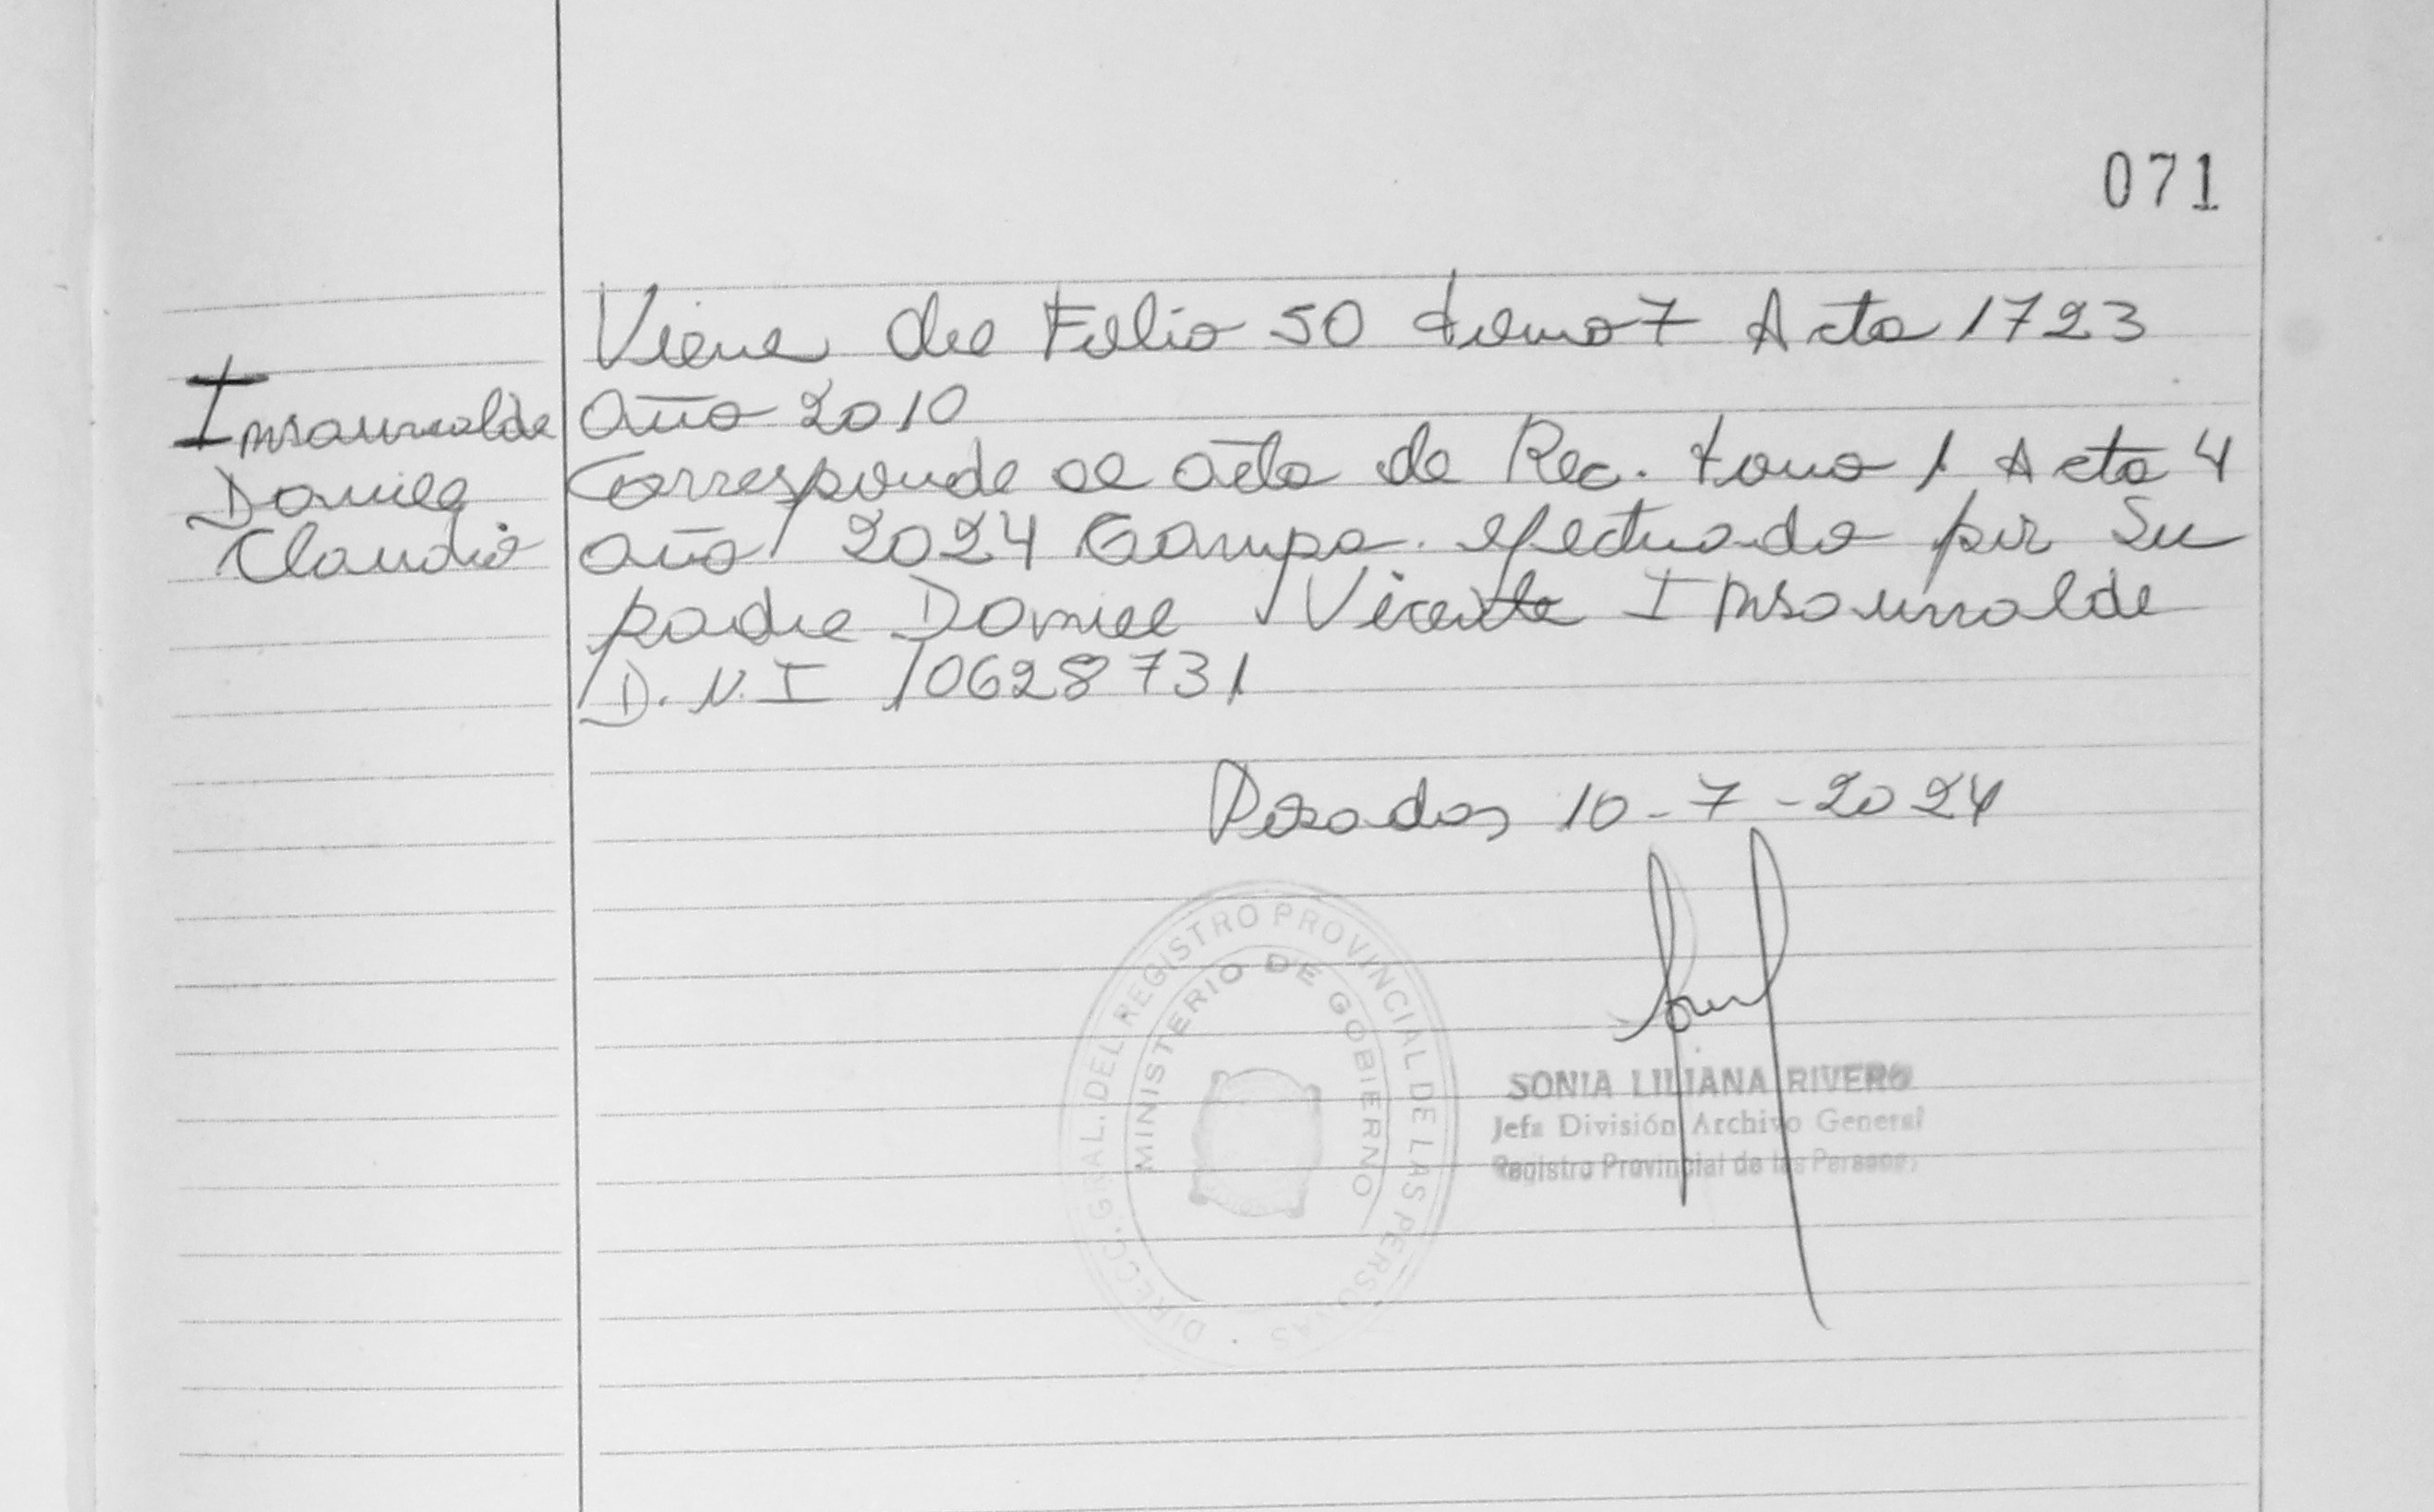 071
Viene del Folio 50 tomo 7 Acta 1723
año 2010
Insaurralde
Daniel
Claudio
Corresponde al acta de Rec. tomo 1 Acta 4
año 2024 Garupa. efectuado por Su
padre Daniel Vicente Insaurralde
D.N.I 10628731
Posadas 10-7-2024
DIRECC. GRAL. DEL REGISTRO PROVINCIAL DE LAS PERSONAS
MINISTERIO DE GOBIERNO
SONIA LILIANA RIVERO
Jefa División Archivo General
Registro Provincial de las Personas